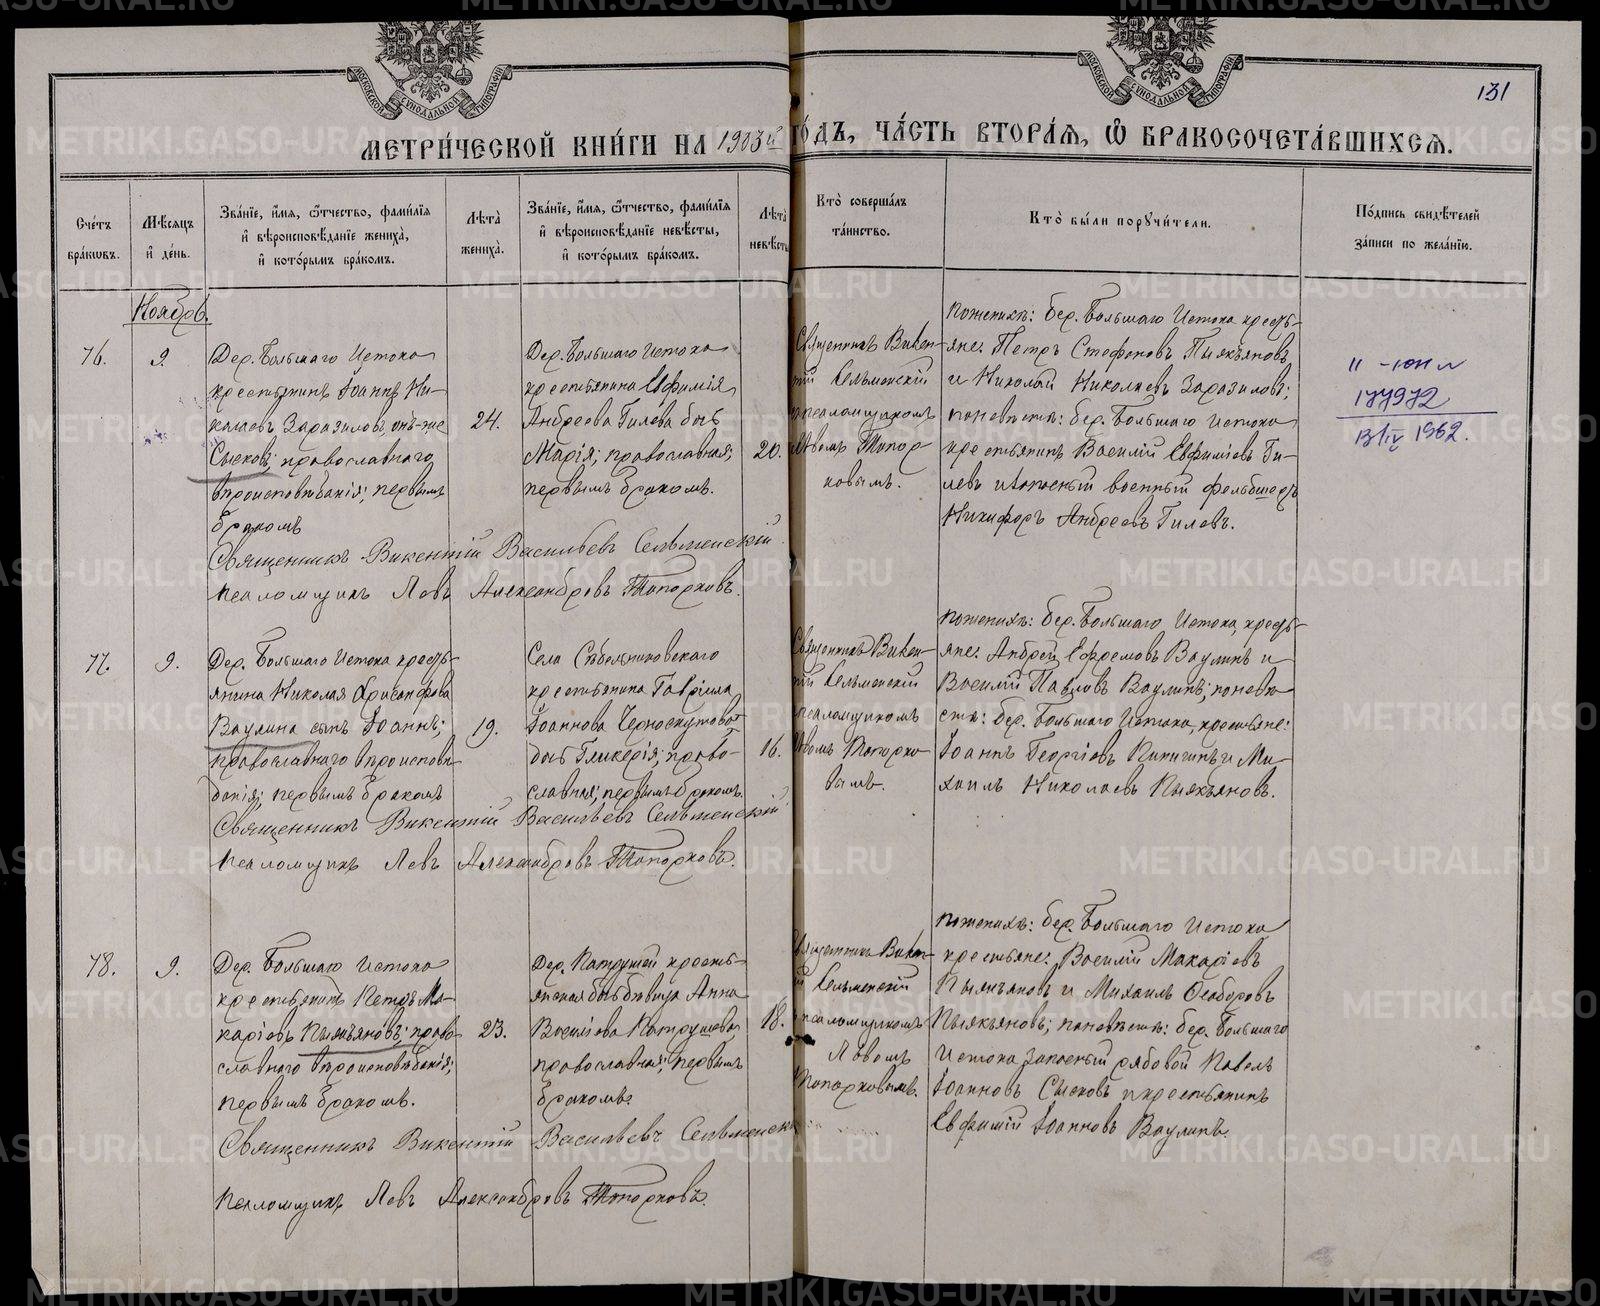 131
МОСКОВСКОЙ СѴНОДАЛЬНОЙ ТИПОГРАФІИ
МОСКОВСКОЙ СѴНОДАЛЬНОЙ ТИПОГРАФІИ
МЕТРИ́ЧЕСКОЙ КНИ́ГИ НА 1903й ГО́ДЪ, ЧА́СТЬ ВТОРА́Я, Ѽ БРАКОСОЧЕТА́ВШИХСЯ.
Счéтъ
бра́кωвъ.
Мѣ́сяцъ
и҆ де́нь.
Зва́нїе, и҆́мя, ѻ҆́тчество, фами́лїя
и҆ вѣроисповѣ́данїе жениха̀,
и҆ кото́рымъ бра́комъ.
Лѣ́та
жениха̀.
Зва́нїе, и҆́мя, ѻ҆́тчество, фами́лїя
и҆ вѣроисповѣ́данїе невѣ́сты,
и҆ кото́рымъ бра́комъ.
Лѣ́та
невѣ́сты
Кто̀ соверша́лъ
та́инство.
Кто̀ бы́ли порꙋчи́тели.
По́дпись свидѣ́телей
за́писи по жела́нїю.
Ноябрь.
76.
9.
Дер. Большаго Истока
крестьянинъ Іоаннъ Ни-
колаевъ Заразиловъ, онъ-же
Сысковъ; православнаго
вѣроисповѣданія; первымъ
бракомъ
24.
Дер. Большаго Истока
крестьянина Евфимія
Андреева Гилева дочь
Марія; православная;
первымъ бракомъ.
20.
Священникъ Викен-
тій Сельменскій
псаломщикомъ
Львомъ Топор
ковымъ.
По женихѣ: дер. Большаго Истока кресть-
яне: Петръ Стефановъ Пьякѣяновъ
и Николай Николаевъ Заразиловъ;
по невѣстѣ: дер. Большаго Истока
крестьянинъ Василій Евфиміевъ Ги-
левъ и запасный военный фельдшеръ
Никифоръ Андреевъ Гилевъ.
177972
1962.
Священникъ Викентій Васильевъ Сельменскій
Псаломщикъ Левъ Александровъ Топорковъ.
77.
9.
Дер. Большаго Истока кресть-
янина Николая Хрисанфова
Ваулина сынъ Іоаннъ;
православнаго вѣроисповѣ-
данія; первымъ бракомъ
19.
Села Сѣдельниковскаго
крестьянина Гавріила
Іоаннова Черноскутова
дочь Гликерія; право-
славная; первымъ бракомъ.
16.
Священникъ Викен-
тій Сельменскій
псаломщикомъ
Львомъ Топорко-
вымъ.
По женихѣ: дер. Большаго Истока, кресть-
яне: Андрей Ефремовъ Ваулинъ и
Василій Павловъ Ваулинъ; по невѣ-
стѣ: дер. Большаго Истока, крестьяне:
Іоаннъ Георгіевъ Кипишъ и Ми-
хаилъ Николаевъ Пьякѣяновъ.
Священникъ Викентій Васильевъ Сельменскій
Псаломщикъ Левъ Александровъ Топорковъ.
78.
9.
Дер. Большаго Истока
крестьянинъ Петръ Ма-
каріевъ Пьякѣяновъ; право-
славнаго вѣроисповѣданія;
первымъ бракомъ.
23.
Дер. Патрушей кресть-
янская дочь дѣвица Анна
Васильева Патрушева,
православная; первымъ
бракомъ.
18.
Священникъ Викен-
тій Сельменскій
псаломщикомъ
Львомъ
Топорковымъ.
По женихѣ: дер. Большаго Истока
крестьяне: Василій Макаріевъ
Пьякѣяновъ и Михаилъ Феодоровъ
Пьякѣяновъ; по невѣстѣ: дер. Большаго
Истока запасный рядовой Павелъ
Іоанновъ Сысковъ и крестьянинъ
Евфимій Іоанновъ Ваулинъ.
Священникъ Викентій Васильевъ Сельменскій
Псаломщикъ Левъ Александровъ Топорковъ.